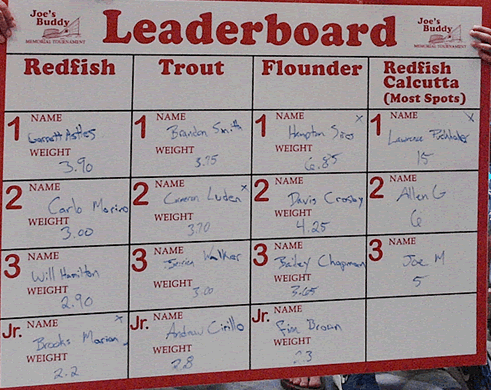 Joe's Buddy
MEMORIAL TOURNAMENT
Leaderboard
Joe's Buddy
MEMORIAL TOURNAMENT
Redfish Trout Flounder Redfish Calcutta (Most Spots)
1 NAME
Garrett Astles
WEIGHT
3.90
1 NAME
Brandon Smith
WEIGHT
3.75
1 NAME x
Hampton
WEIGHT
6.85
1 NAME x
Lawrence
WEIGHT
15
2 NAME
Carlo Marino
WEIGHT
3.00
2 NAME x
Cameron Luden
WEIGHT
3.70
2 NAME
Davis Crosby
WEIGHT
4.25
2 NAME
Allen G
WEIGHT
6
3 NAME
Will Hamilton
WEIGHT
2.90
3 NAME
Walker
WEIGHT
3.00
3 NAME
Bailey Chapman
WEIGHT
3.65
3 NAME
Joe M
WEIGHT
5
Jr. NAME x
Brooks
WEIGHT
2.2
Jr. NAME
Andrew Cirillo
WEIGHT
2.8
Jr. NAME
Brown
WEIGHT
2.3